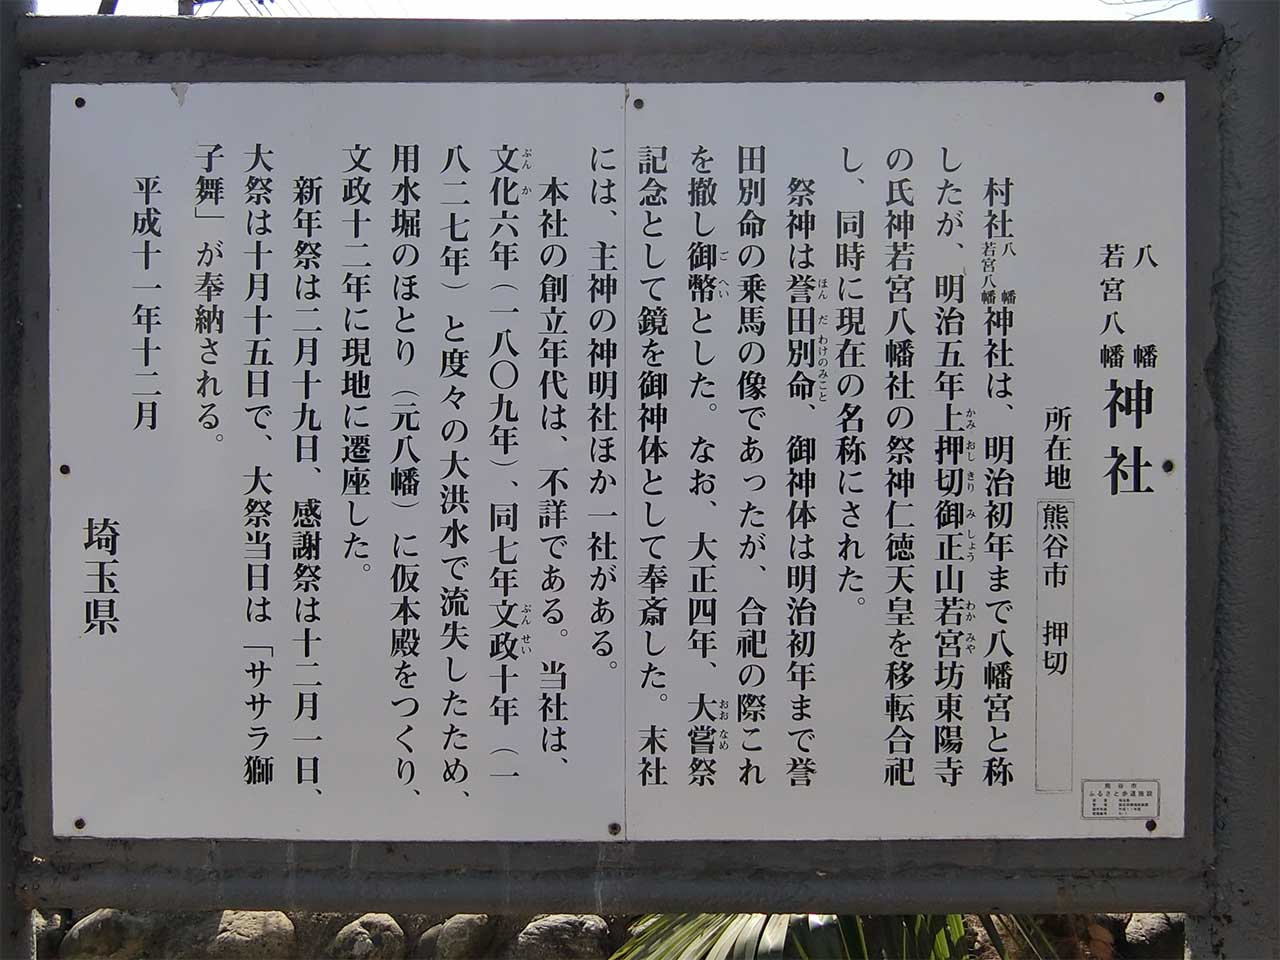 八幡
若宮八幡 神社
所在地 熊谷市 押切
村社八幡若宮八幡神社は、明治初年まで八幡宮と称
したが、明治五年上押切御正山若宮坊東陽寺
の氏神若宮八幡社の祭神仁徳天皇を移転合祀
し、同時に現在の名称にされた。
祭神は誉田別命、御神体は明治初年まで誉
田別命の乗馬の像であったが、合祀の際これ
を撤し御幣とした。なお、大正四年、大嘗祭
記念として鏡を御神体として奉斎した。末社
には、主神の神明社ほか一社がある。
本社の創立年代は、不詳である。当社は、
文化六年（一八〇九年）、同七年文政十年（一
八二七年）と度々の大洪水で流失したため、
用水堀のほとり（元八幡）に仮本殿をつくり、
文政十二年に現地に遷座した。
新年祭は二月十九日、感謝祭は十二月一日、
大祭は十月十五日で、大祭当日は「ササラ獅
子舞」が奉納される。
平成十一年十二月
埼玉県
熊谷市
ふるさと歩道施設